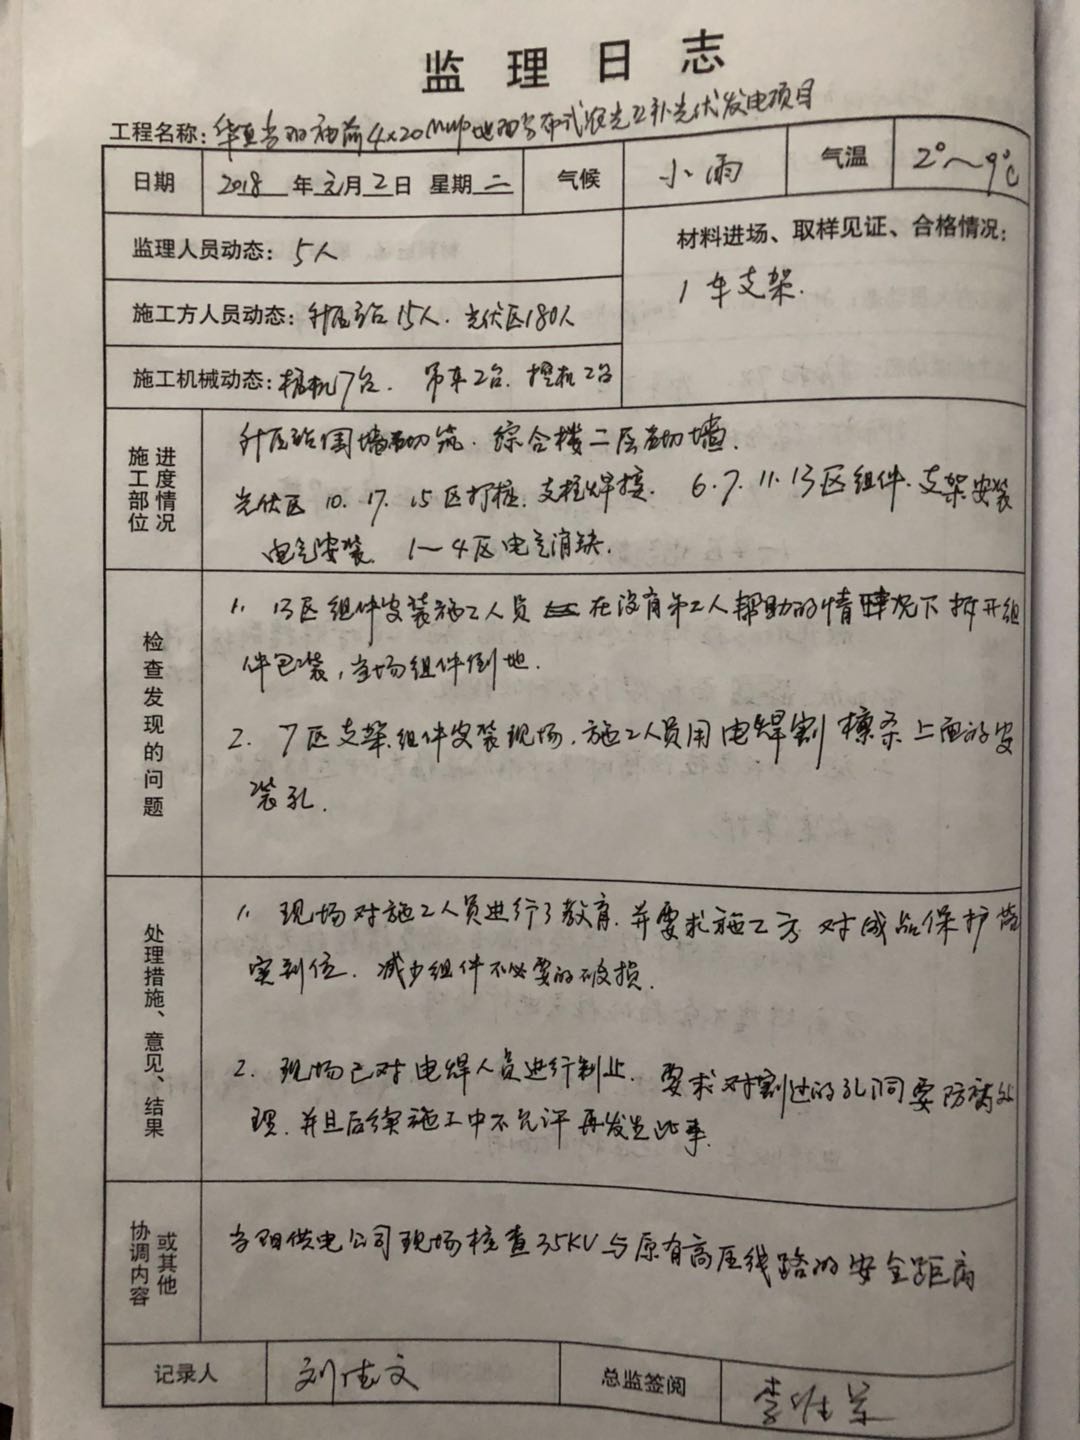 监理日志
工程名称：华直当阳 4×20MWp地面分布式农光互补光伏发电项目
日期 2018 年元月2日 星期二 气候 小雨 气温 2°～9℃
监理人员动态：5人
材料进场、取样见证、合格情况：
1车支架.
施工方人员动态：升压站15人. 光伏区180人
施工机械动态：桩机7台. 吊车2台. 挖机2台
施工部位 进度情况
升压站围墙砌筑. 综合楼二层砌墙.
光伏区 10. 17. 15区打桩. 支柱焊接. 6.7.11.13区组件.支架安装
电气安装. 1～4区电气消缺.
检查发现的问题
1. 13区组件安装施工人员在没有第二人帮助的情况下拆开组
件包装，当场组件倒地.
2. 7区支架.组件安装现场.施工人员用电焊割檩条上面的安
装孔.
处理措施、意见、结果
1. 现场对施工人员进行了教育.并要求施工方对成品保护落
实到位. 减少组件不必要的破损.
2. 现场已对电焊人员进行制止. 要求对割过的孔洞要防腐处
理.并且后续施工中不允许再发生此事.
协调内容 或其他
当阳供电公司现场核查35KV与原有高压线路的安全距离
记录人 刘佳文 总监签阅 李